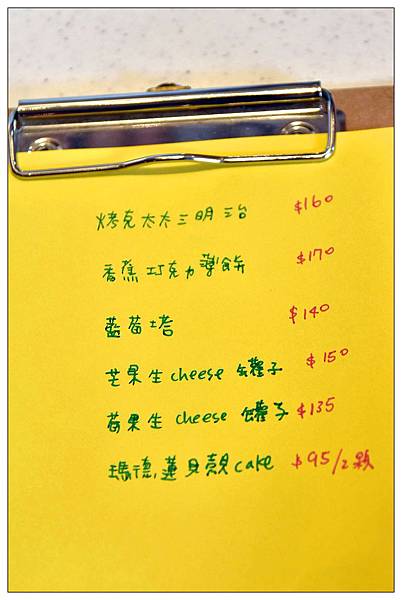 烤克太太三明治 $160
香蕉巧克力薄餅 $170
藍莓塔 $140
芒果生cheese罐子 $150
莓果生cheese罐子 $135
瑪德蓮貝殼cake $95/2顆